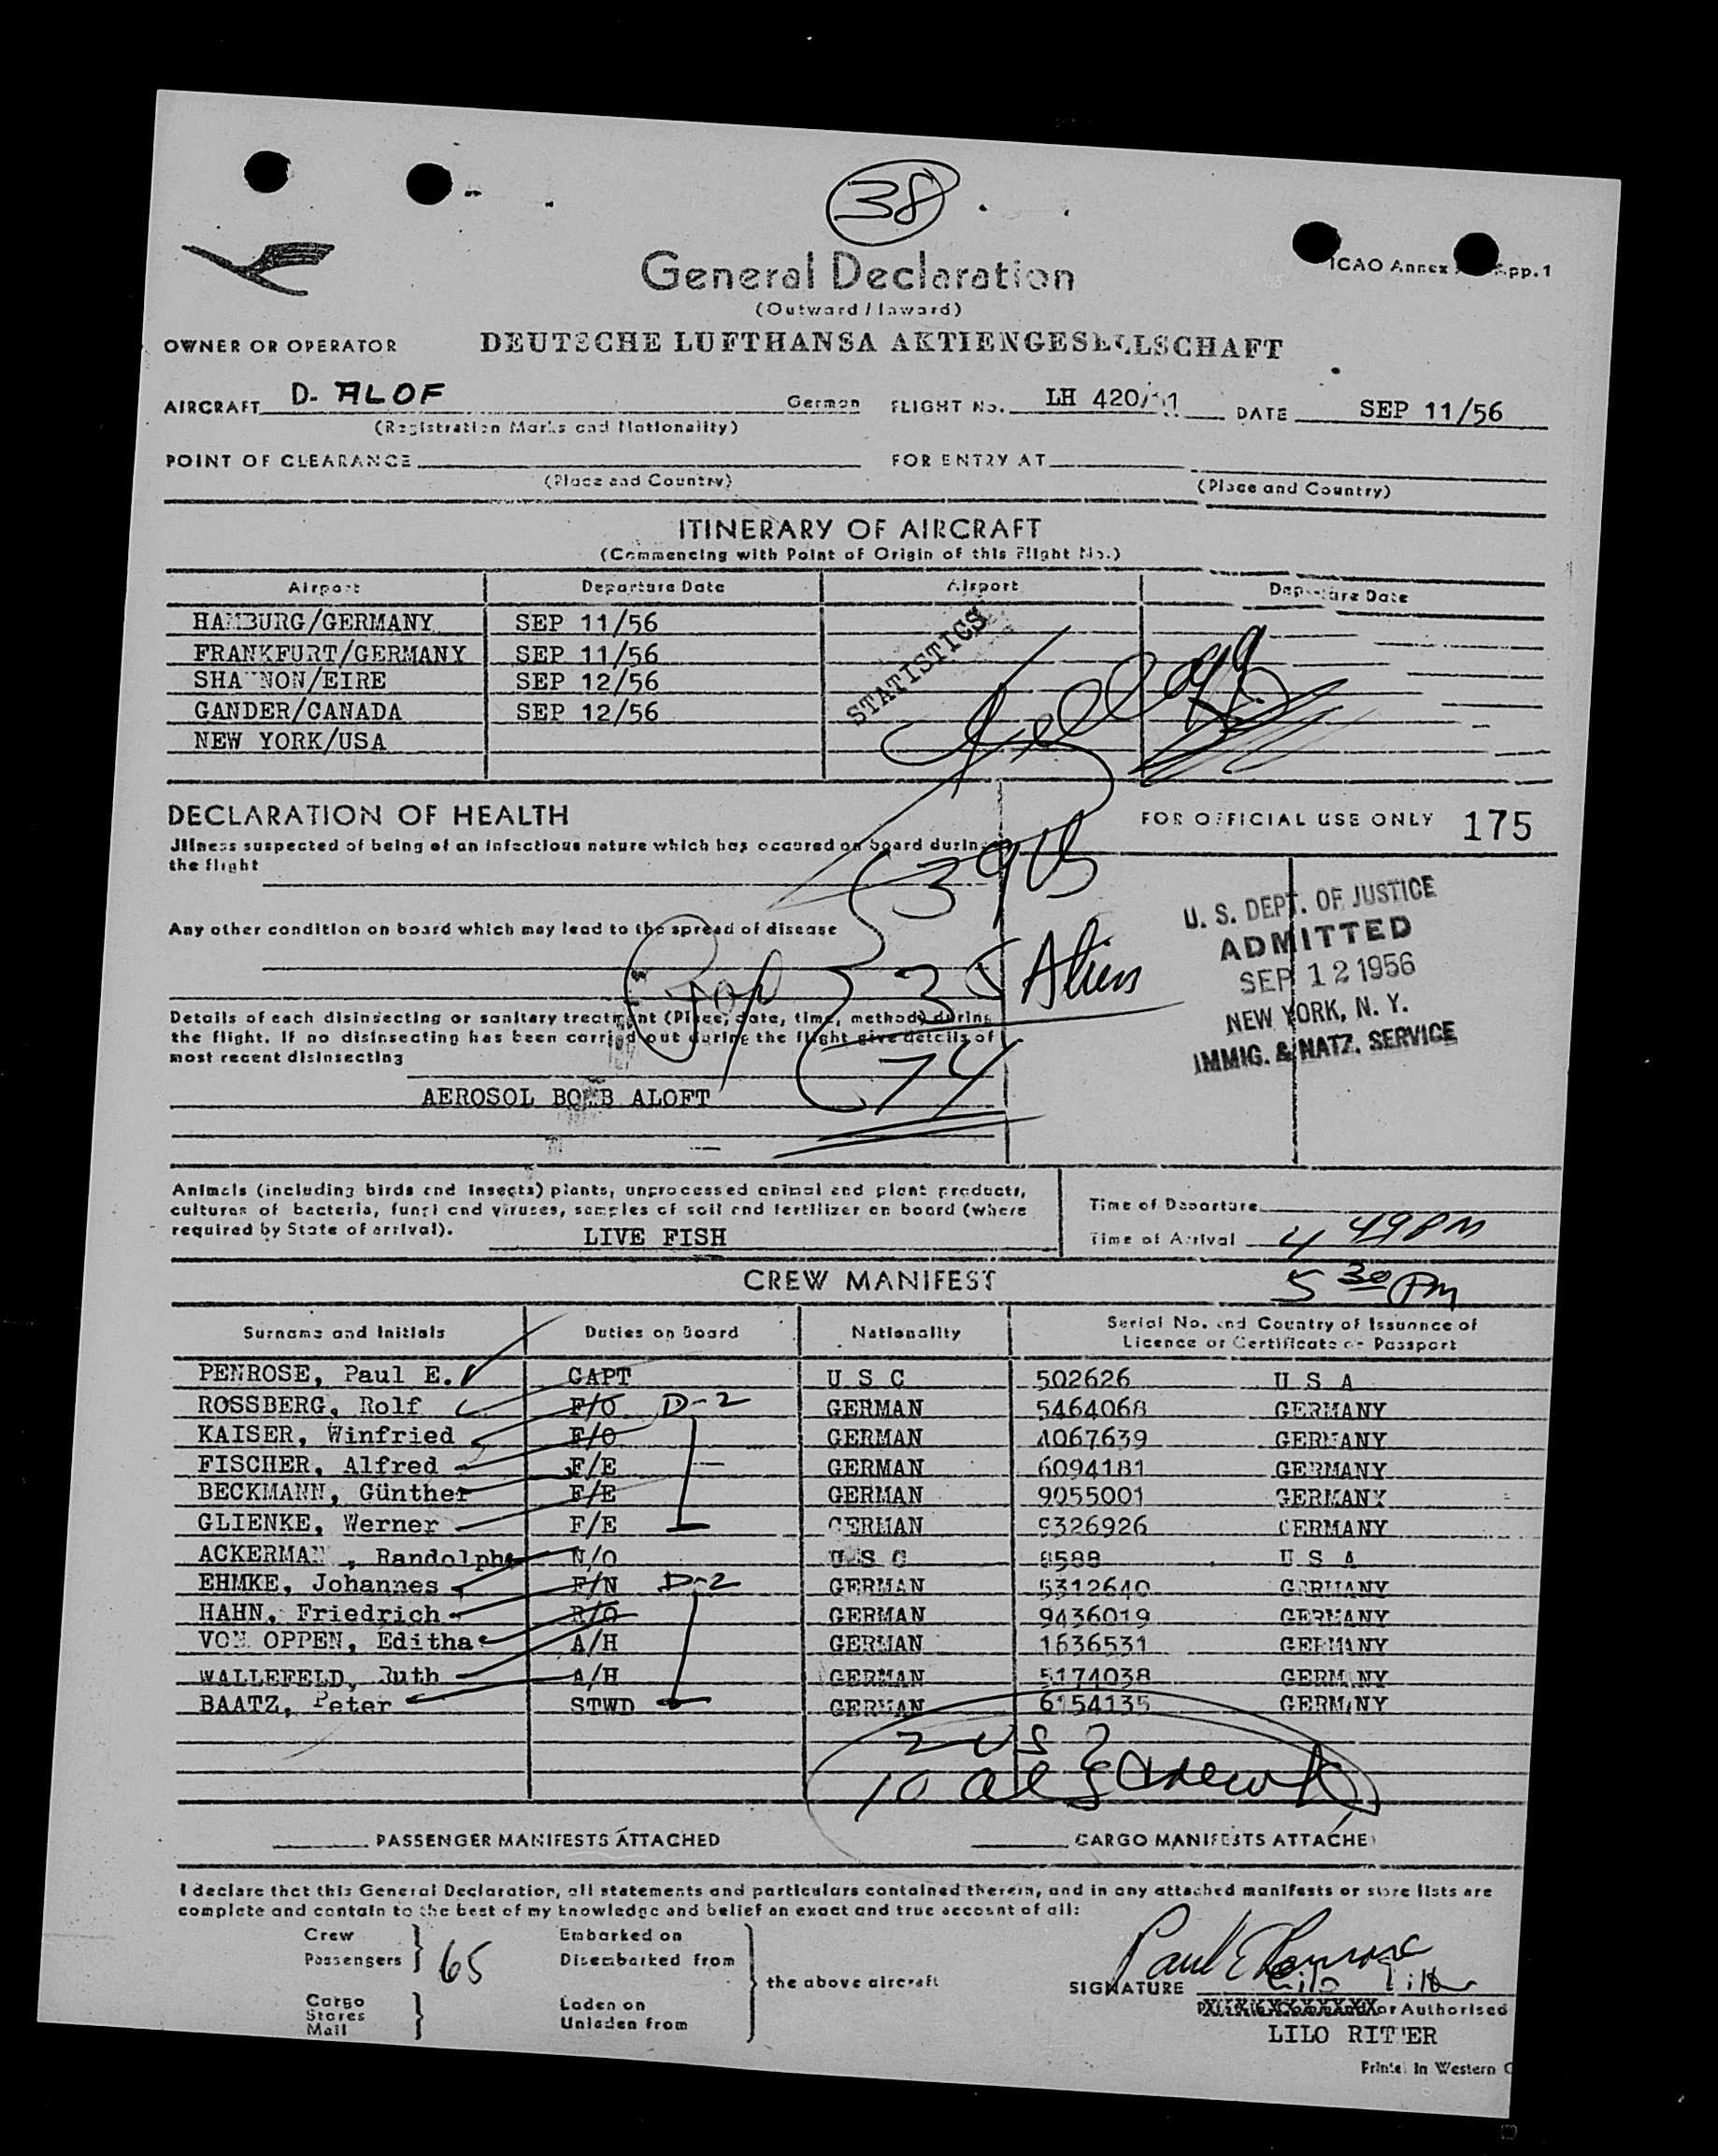 38
General Declaration
ICAO Annex pp. 1
(Outward / Inward)
OWNER OR OPERATOR DEUTSCHE LUFTHANSA AKTIENGESELLSCHAFT
AIRCRAFT D- ALOF German FLIGHT No. LH 420/ DATE SEP 11/56
(Registration Marks and Nationality)
POINT OF CLEARANCE FOR ENTRY AT
(Place and Country) (Place and Country)
ITINERARY OF AIRCRAFT
(Commencing with Point of Origin of this Flight No.)
Airport Departure Date Airport Departure Date
HAMBURG/GERMANY SEP 11/56
FRANKFURT/GERMANY SEP 11/56
SHANNON/EIRE SEP 12/56
GANDER/CANADA SEP 12/56
NEW YORK/USA
STATISTICS
DECLARATION OF HEALTH
FOR OFFICIAL USE ONLY 175
Jllness suspected of being of an infectious nature which has occured on board during
the flight
39
Any other condition on board which may lead to the spread of disease
35 Aliens
Details of each disinsecting or sanitary treatment (Place, date, time, method) during
the flight. If no disinsecting has been carried out during the flight give details of
most recent disinsecting
74
AEROSOL BOMB ALOFT
U. S. DEPT. OF JUSTICE
ADMITTED
SEP 12 1956
NEW YORK, N. Y.
IMMIG. & NATZ. SERVICE
Animals (including birds and insects) plants, unprocessed animal and plant products,
cultures of bacteria, fungi and viruses, samples of soil and fertilizer on board (where
required by State of arrival). LIVE FISH
Time of Departure
Time of Arrival 4 49 PM
5 30 Pm
CREW MANIFEST
Surname and Initials Duties on Board Nationality Serial No. and Country of Issuance of
Licence or Certificate or Passport
PENROSE, Paul E. CAPT U S C 502626 U S A
ROSSBERG, Rolf F/O D-2 GERMAN 5464068 GERMANY
KAISER, Winfried F/O GERMAN 4067639 GERMANY
FISCHER, Alfred F/E GERMAN 6094181 GERMANY
BECKMANN, Günther F/E GERMAN 9055001 GERMANY
GLIENKE, Werner F/E GERMAN 9326926 GERMANY
ACKERMAN , Randolph N/O U S C 8588 U S A
EHMKE, Johannes F/N D-2 GERMAN 5312640 GERMANY
HAHN, Friedrich R/O GERMAN 9436019 GERMANY
VON OPPEN, Editha A/H GERMAN 1636531 GERMANY
WALLEFELD, Ruth A/H GERMAN 5174038 GERMANY
BAATZ, Peter STWD GERMAN 6154135 GERMANY
2 US
10 al crew
PASSENGER MANIFESTS ATTACHED CARGO MANIFESTS ATTACHED
I declare that this General Declaration, all statements and particulars contained therein, and in any attached manifests or store lists are
complete and contain to the best of my knowledge and belief an exact and true account of all:
Crew
Passengers 65
Embarked on
Disembarked from
the above aircraft
Cargo
Stores
Mail
Laden on
Unladen from
SIGNATURE Paul E Penrose
or Authorised
LILO RITTER
Printed in Western